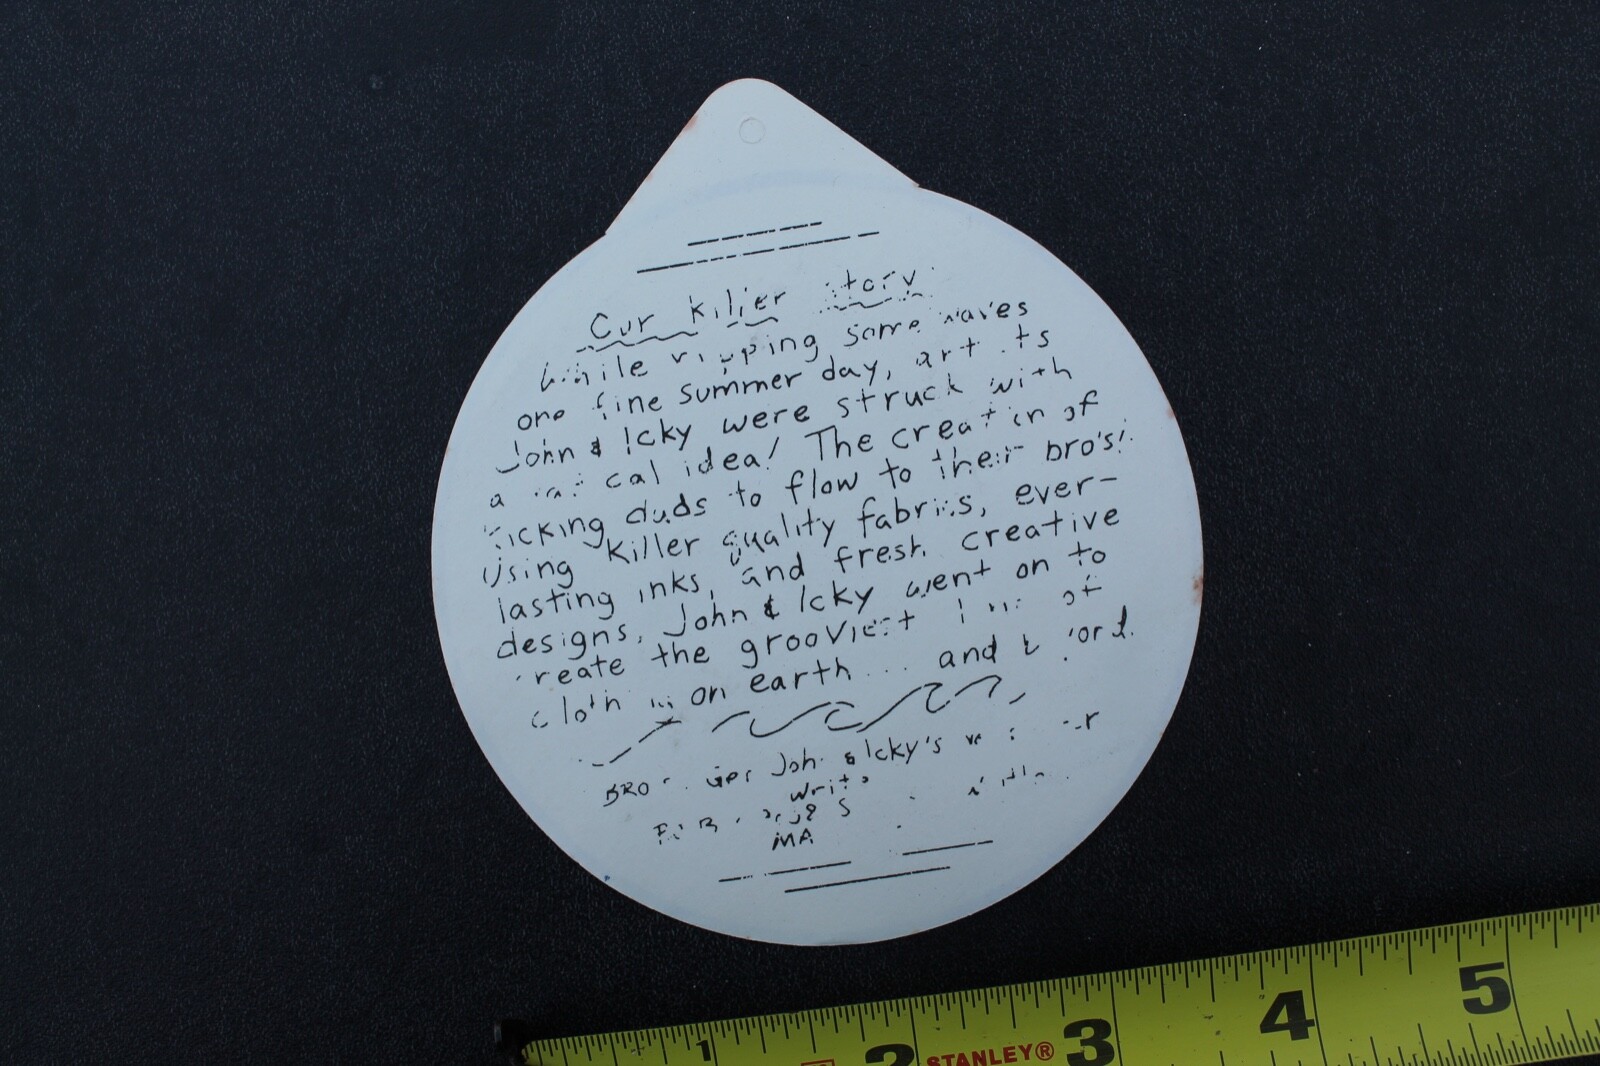 Our killer story
While ripping some waves
one fine summer day, artists
John & Icky were struck with
a radical idea! The creation of
kicking duds to flow to their bro's!
Using killer quality fabrics, ever-
lasting inks, and fresh creative
designs, John & Icky went on to
create the grooviest line of
clothing on earth... and beyond.
John & Icky's
write
MA
1 2 STANLEY® 3 4 5